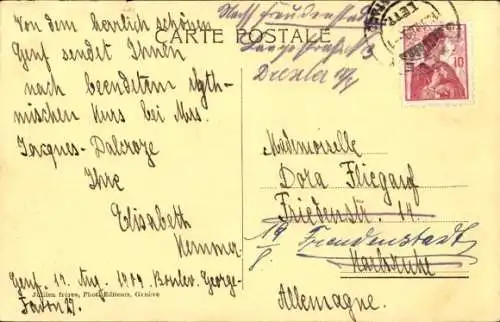 Von dem herrlich schönen
Genf sendet Ihnen
nach beendetem ryth-
mischen Kurs bei Mrs.
Jacques-Dalcroze
Ihre
Elisabeth
Kemmer
Genf. 17. Aug. 1909. Boulev. George-
Favon 27.
Jullien frères, Phot-Editeurs, Genève
CARTE POSTALE
Nach Freudenstadt
10
Mademoiselle
Dora Fliegauf
Friedenstr. 11
Freudenstadt
Karlsruhe
Allemagne.